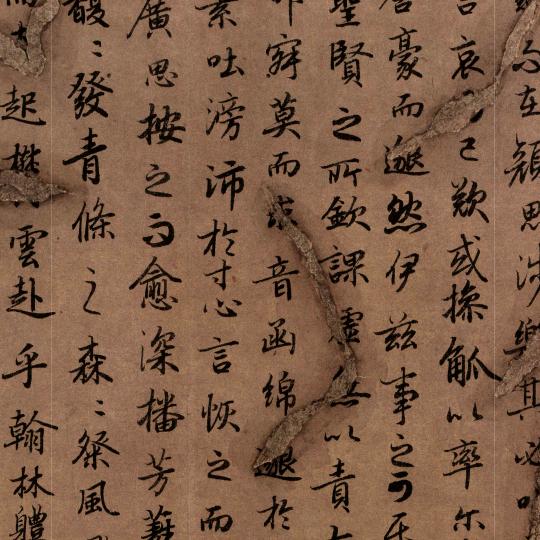 在顏思涉樂其必
言哀而已歎或操觚以率尓
豪而邈然伊茲事之可
聖賢之所欽課虛無以責
叩寂莫而求音函綿邈於
素吐滂沛於寸心言恢之而
廣思按之而愈深播芳蕤
馥〻發青條之森〻粲風
起雲赴乎翰林體